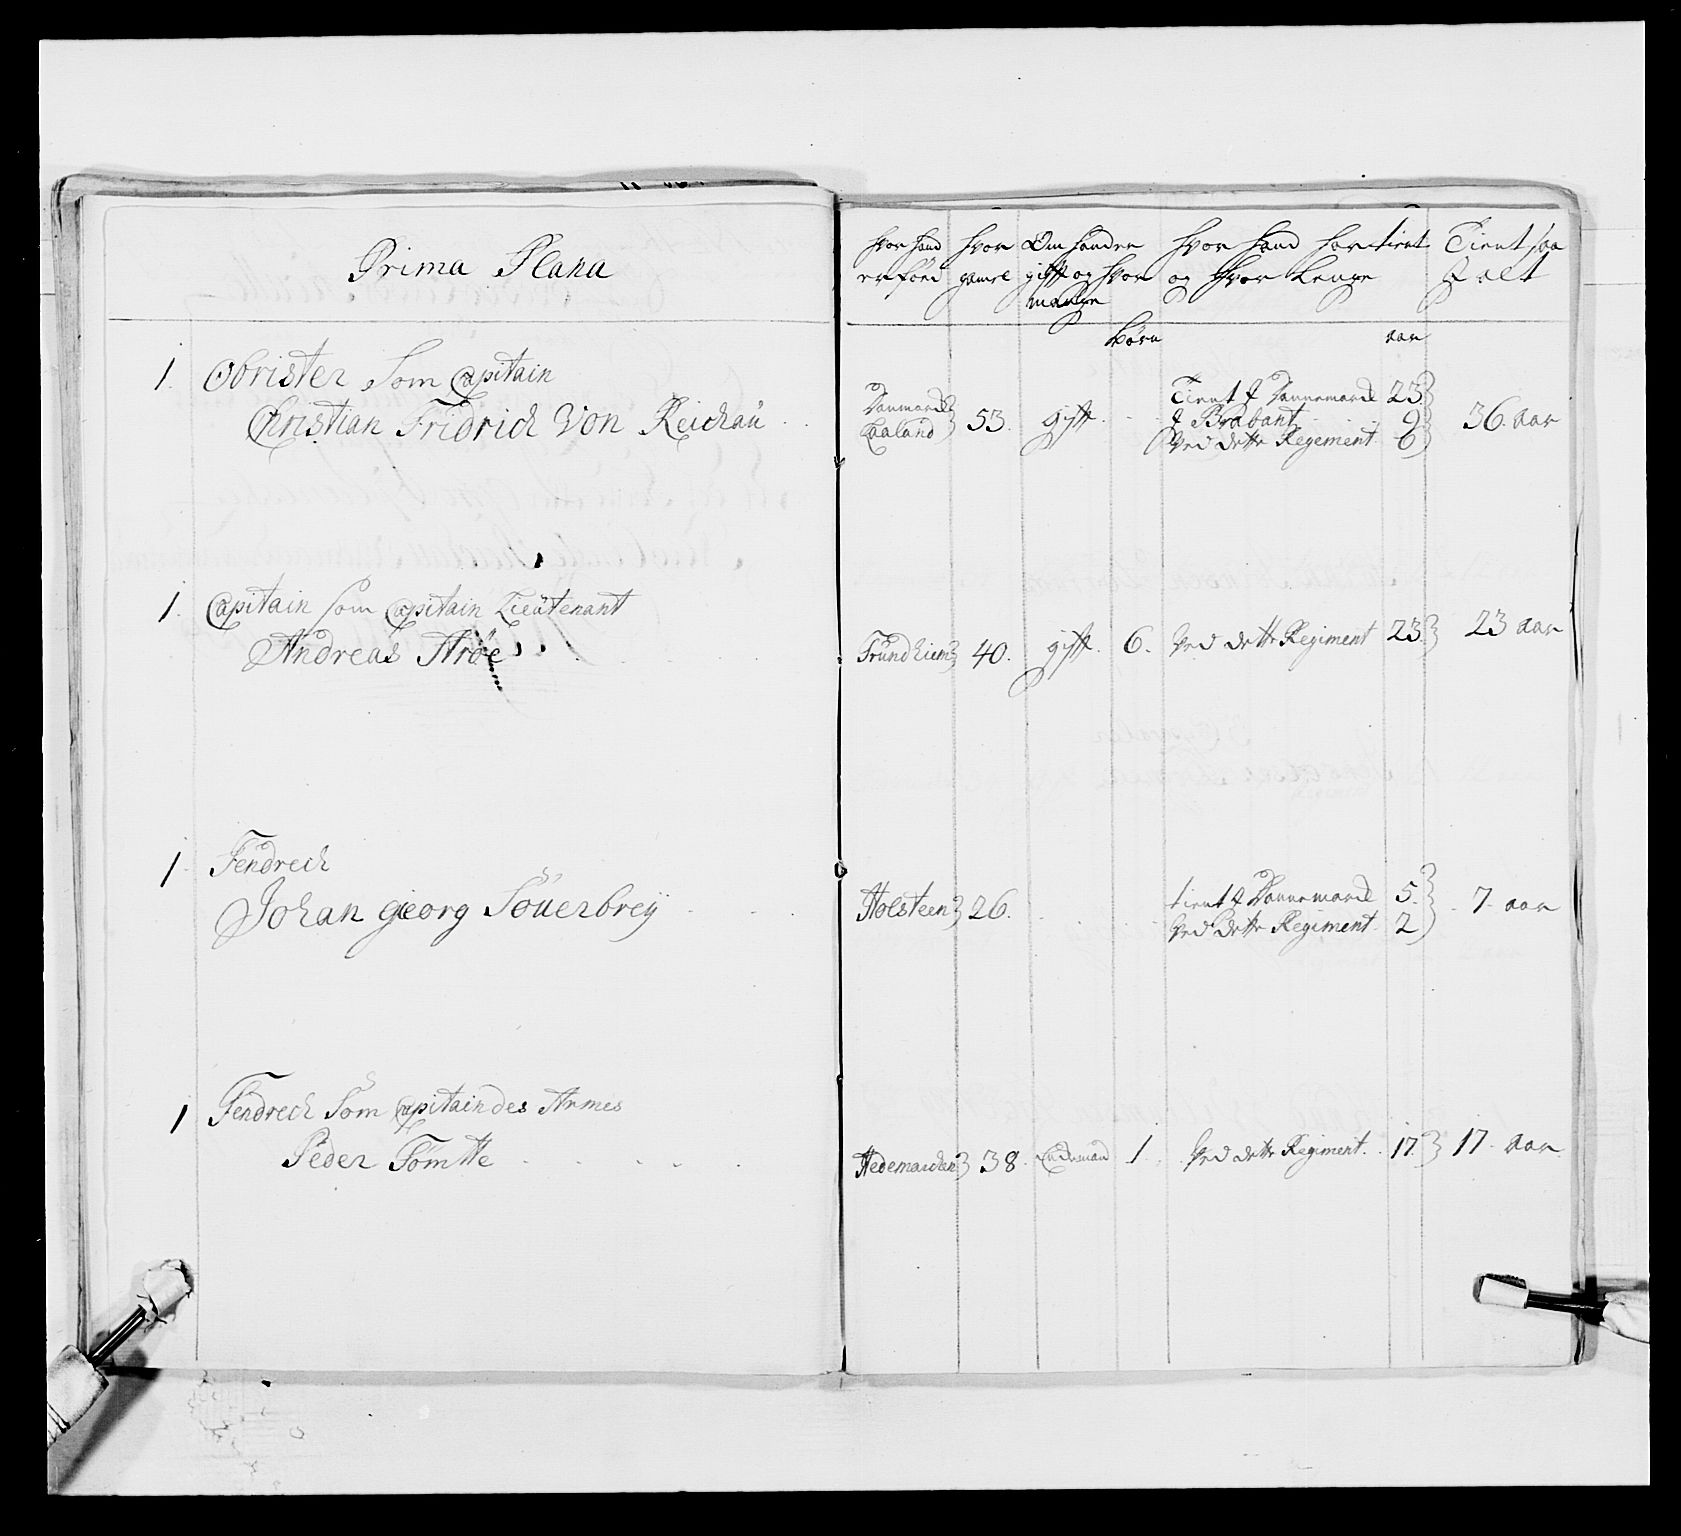 Prima Plana
1. Obrister Som Capitain
Christian Fridrich Von Reichau
1. Capitain som Capitain Lieutenant
Andreas Arøe
1 Fendrech
Johan georg Söuerbreÿ
1 Fendrech Som Capitain des Armes
Peder Tomtte
hvor hand er föed
hvor gamel
Om hand er gifft og hvor mange
börn
hvor hand har tient og hvor Lenge
aar
Tient saa J alt
Danmarck Laaland 53. gifft
Tient J Dannemarck 23
J Brabant 9
Ved dette Regement 6
36. aar
Trundhiem 40. gifft. 6. Ved dette Regiment 23 23 aar
Holsteen 26.
tient J Dannemarck 5.
Ved dette Regiment. 2
7. aar
Hedemarcken 38. Enckemand 1. Ved dette Regiment. 17. 17. aar